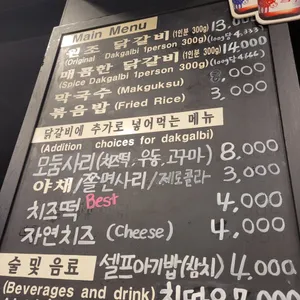 Main Menu
원조 닭갈비 (1인분 300g) 13,000
(Original Dakgalbi 1person 300g) (100g당 4,333)
매콤한 닭갈비 (1인분 300g) 14,000
(Spice Dakgalbi 1person 300g) (100g당 4,666)
막국수 (Makguksu) 8,000
볶음밥 (Fried Rice) 3,000
닭갈비에 추가로 넣어먹는 메뉴
(Addition choices for dakgalbi)
모둠사리 (치떡, 우동, 고구마) 8,000
야채/쫄면사리/제로콜라 3,000
치즈떡 Best 4,000
자연치즈 (Cheese) 4,000
술 및 음료 셀프아기밥(참치) 4,000
(Beverages and drink)